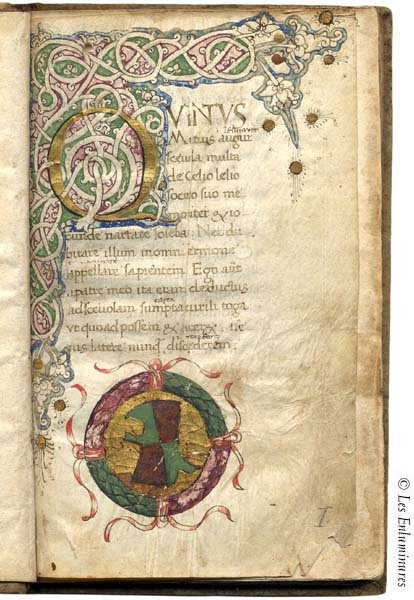 QVINTVS
Mutius augur
sceuola multa
de Celio lelio
socero suo me
moriter & io
cunde narrare solebat Nec du
bitare illum in omni ermone
appellare sapientem. Ego aut
patre meo ita eram deductus
ad sceuolam sumpta uirili toga
vt quo ad possem &
nis latere nunq discederem.
I
© Les Enluminures